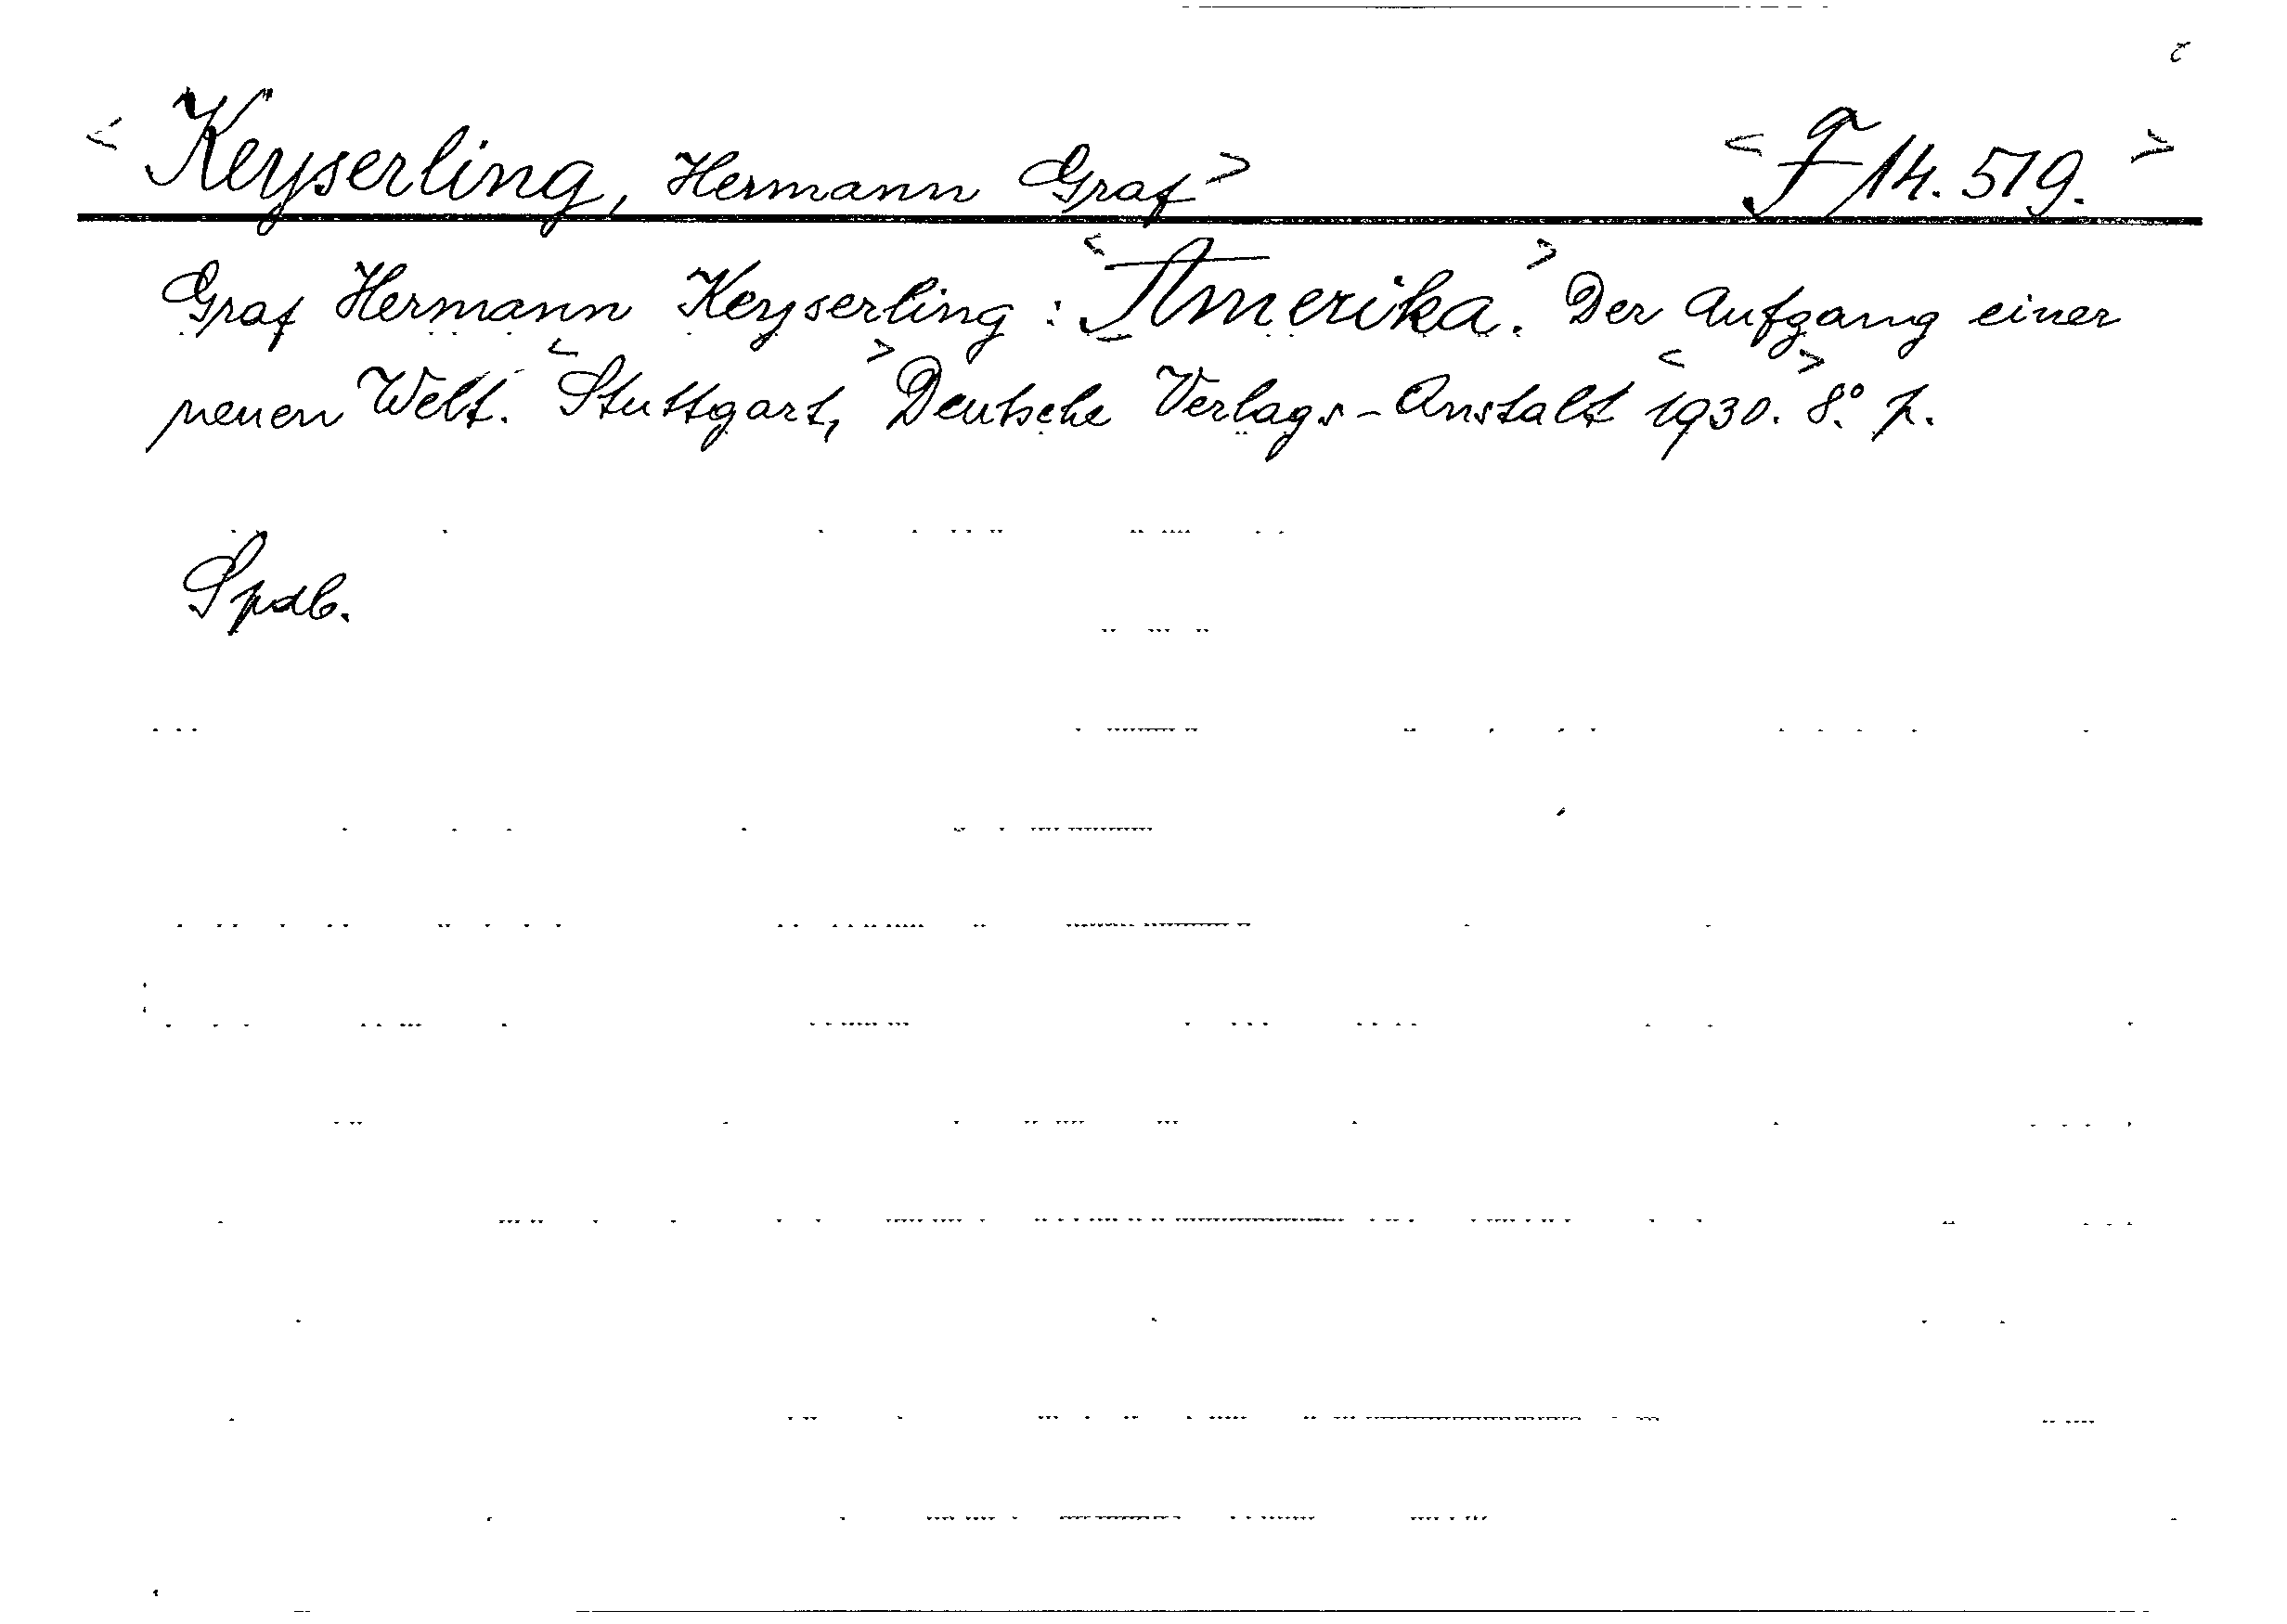 < Keyserling, Hermann Graf > < F 14.519. >
Graf Hermann Keyserling : < Amerika. > Der Aufgang einer
neuen Welt. < Stuttgart, > Deutsche Verlags-Anstalt < 1930. > 8.° p.
Spdb.